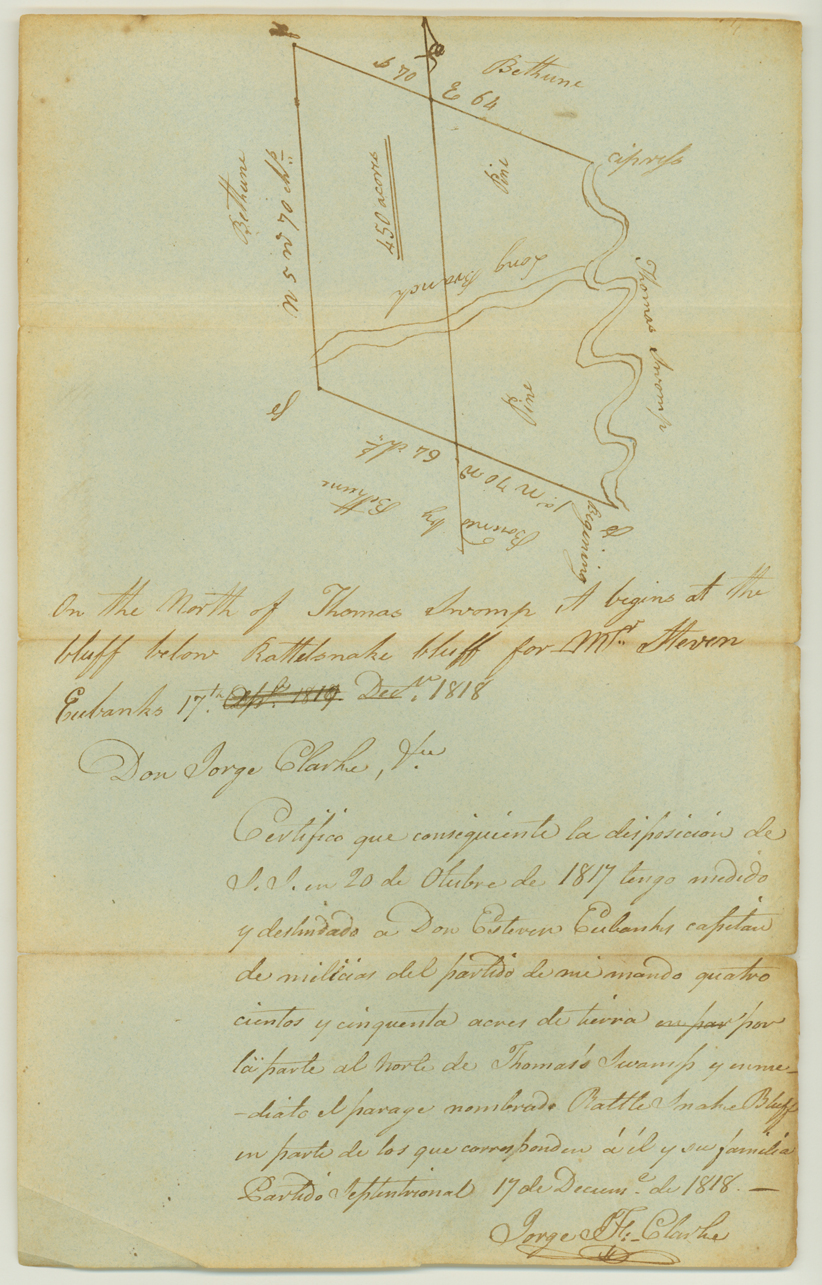 Bethune
70
E 64
cipress
Bethune
N 5 W 70 chs
450 acorrs
Pine
Long Branch
Thomas Swomp
Pine
64 chs
1st N 70 W
Bound by Bethune
Begining
On the North of Thomas Swomp it begins at the
bluff below Rattelsnake bluff for Mr. Steven
Eubanks 17th. Decr. 1818
Don Jorge Clarke, &ce
Certifico que consiguiente la disposicion de
S. S. en 20 de Otubre de 1817 tengo medido
y deslindado a Don Esteven Eubanks capitan
de milicias del partido de mi mando quatro
cientos y cinquenta acres de tierra en par por
la parte al norte de Thomas's Swamp y inme-
-diato el parage nombrado Rattle Snake Bluff
en parte de los que corresponden á él y su familia
Partido Septentrional 17 de Decime. de 1818. —
Jorge J. F. Clarke